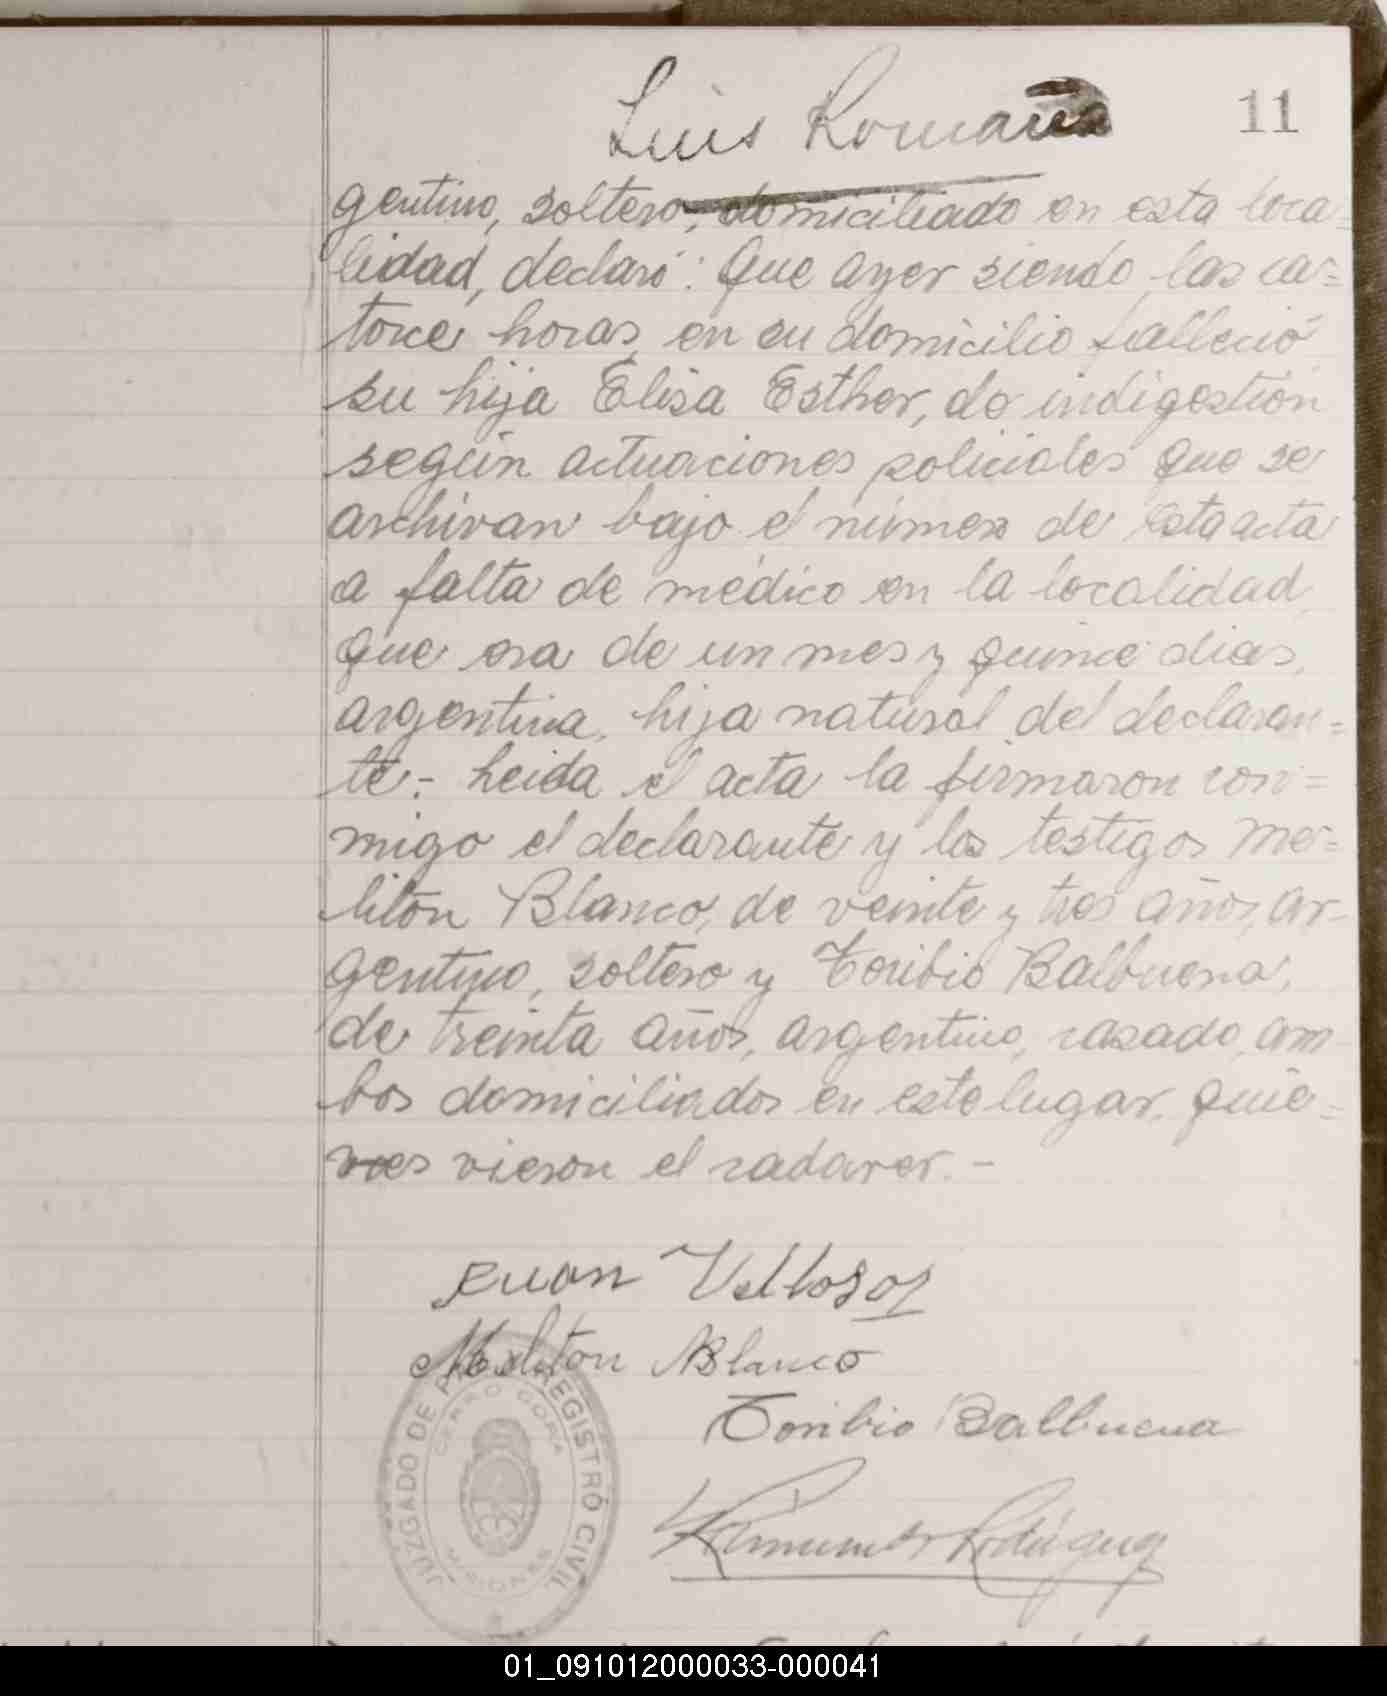 Luis Romaña
11
gentino, soltero, domiciliado en esta loca=
lidad, declaró: Que ayer siendo las ca=
torce horas, en su domicilio falleció
su hija Elisa Esther, de indigestión
según actuaciones policiales que se
archivan bajo el número de esta acta
a falta de médico en la localidad,
que era de un mes y quince dias,
argentina, hija natural del declaran=
te.- Leida el acta la firmaron con=
migo el declarante y los testigos Me=
litón Blanco, de veinte y tres años, ar-
gentino, soltero y Toribio Balbuena,
de treinta años, argentino, casado, am-
bos domiciliados en este lugar, quie=
nes vieron el cadaver.-
Juan Vellosoz
Meliton Blanco
Toribio Balbuena
Rodriguez
JUZGADO DE PAZ REGISTRO CIVIL
CERRO CORA
MISIONES
01_091012000033-000041